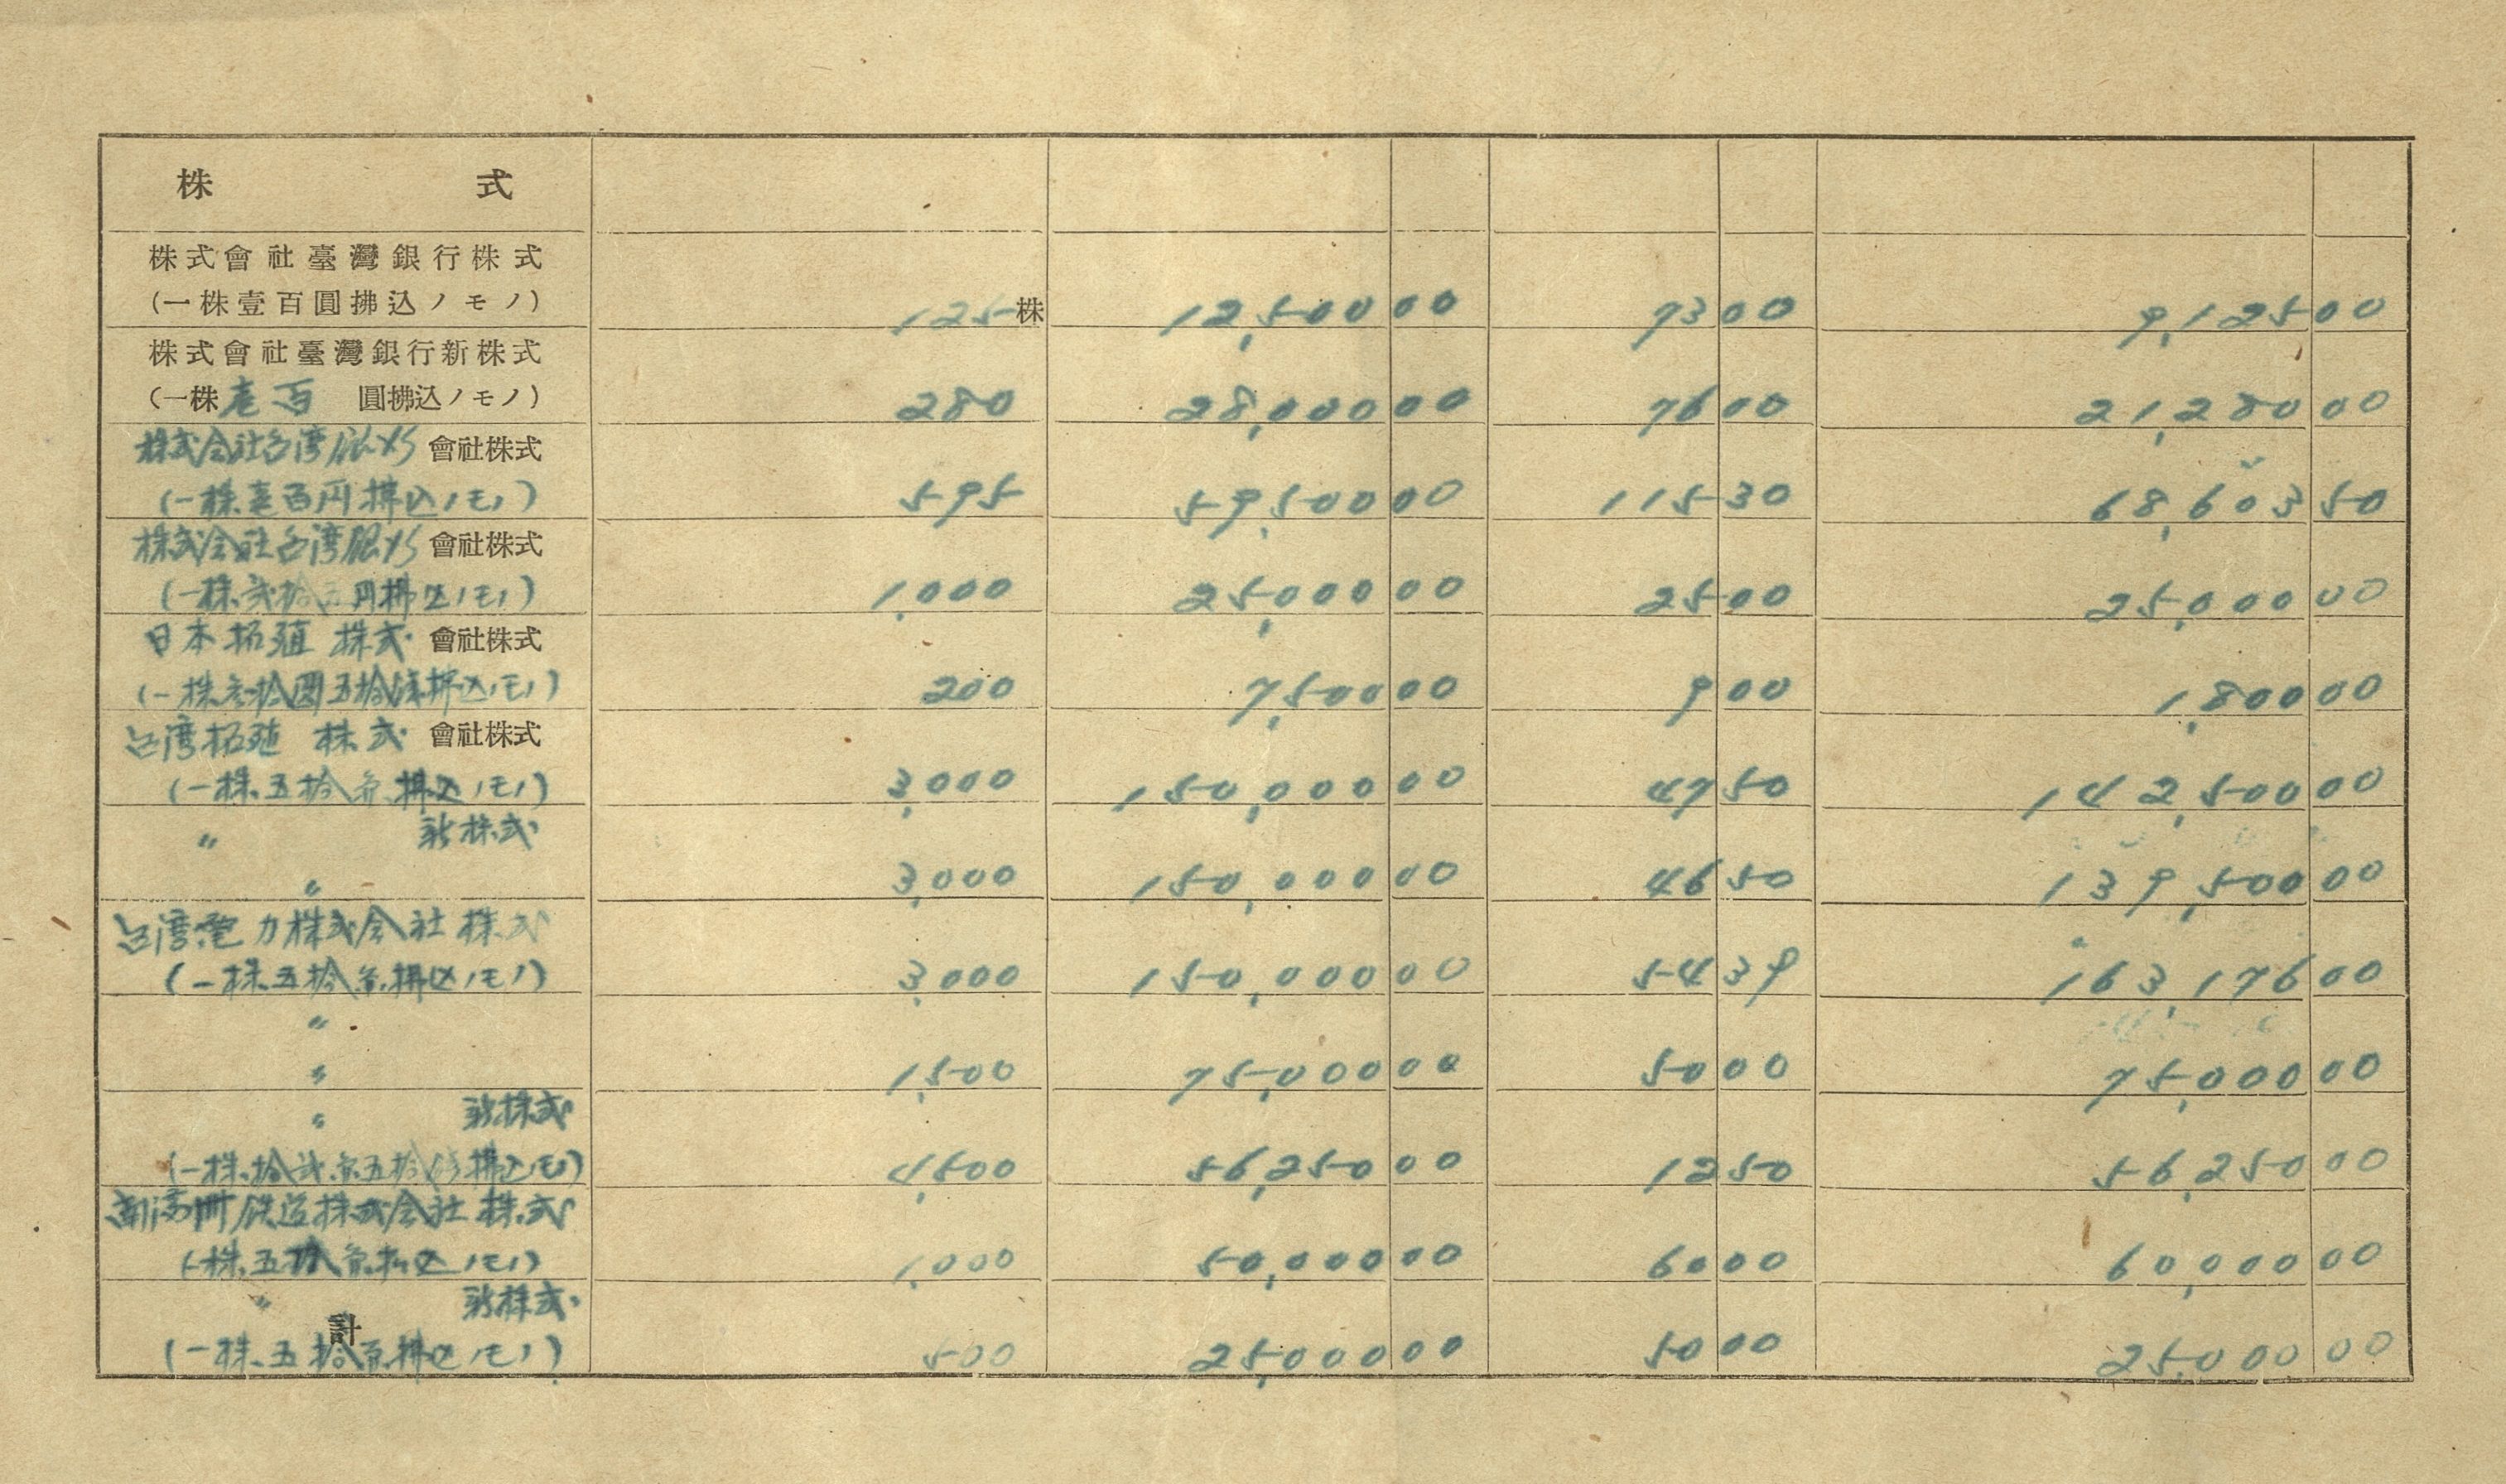 株式
株式會社臺灣銀行株式
(一株壹百圓拂込ノモノ) 125株 12,500 00 73 00 9,125 00
株式會社臺灣銀行新株式
(一株壱百圓拂込ノモノ) 280 28,000 00 76 00 21,280 00
株式会社台湾銀行會社株式
(一株壱百円拂込ノモノ) 595 59,500 00 115 30 68,603 50
株式会社台湾銀行會社株式
(一株弐拾五円拂込ノモノ) 1,000 25,000 00 25 00 25,000 00
日本拓殖株式會社株式
(一株参拾圓五拾銭拂込ノモノ) 200 7,500 00 9 00 1,800 00
台湾拓殖株式會社株式
(一株五拾円拂込ノモノ) 3,000 150,000 00 47 50 142,500 00
〃 新株式
〃 3,000 150,000 00 46 50 139,500 00
台湾電力株式会社株式
(一株五拾円拂込ノモノ) 3,000 150,000 00 54 39 163,176 00
〃
〃 1,500 75,000 00 50 00 75,000 00
〃 新株式
(一株拾弐円五拾銭拂込ノモノ) 4,500 56,250 00 12 50 56,250 00
南満州鉄道株式会社株式
(一株五拾円拂込ノモノ) 1,000 50,000 00 60 00 60,000 00
〃 新株式
計
(一株五拾円拂込ノモノ) 500 25,000 00 50 00 25,000 00